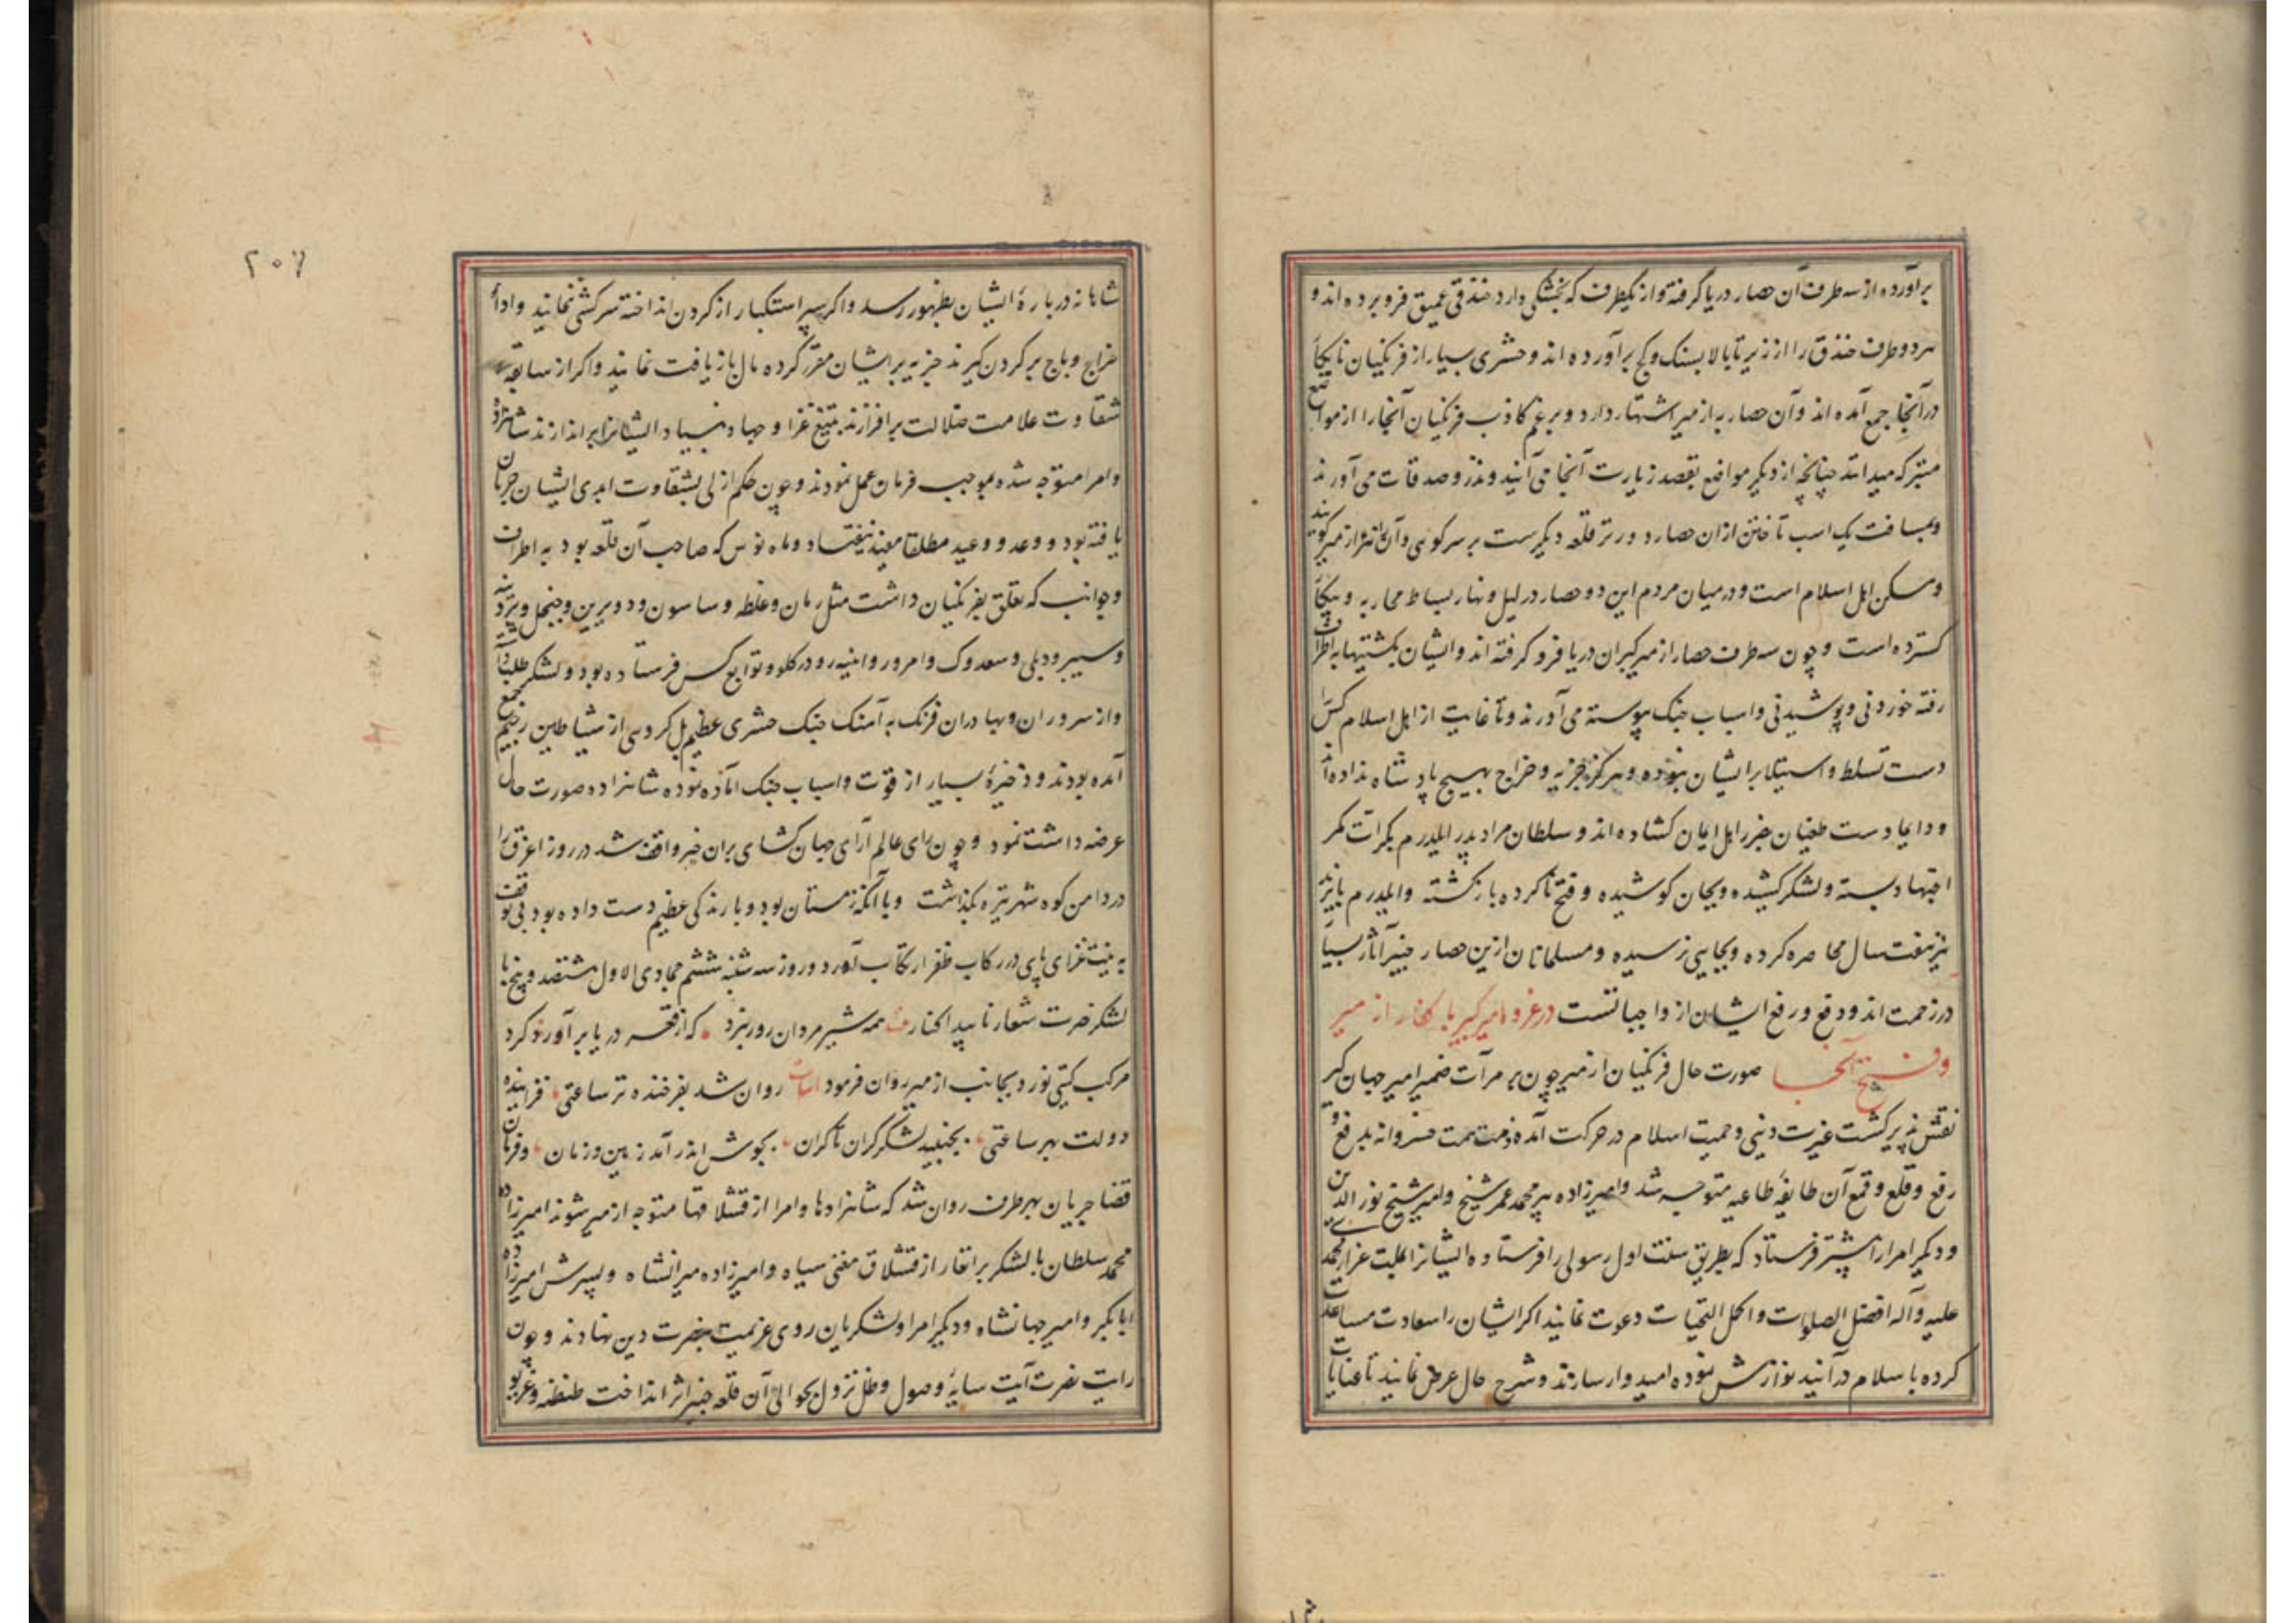 برآورده از سه طرف آن حصار دریا گرفته و از یکطرف که بخشکی دارد خندقی عمیق فرو برده اند و
هر دو طرف خندق را از زیر تا بالا بسنک و کچ برآورده اند و حشری بسیار از فرنکیان نابکار
در آنجا جمع آمده اند و آن حصار به ازمیر اشتهار دارد و بر غم کاذب فرنکیان آنجا را از مواضع
متبرکه میدانند چنانچه از دیکر مواضع بقصد زیارت آنجا می آیند و نذر و صدقات می آورند
و بمسافت یک اسب تاختن ازان حصار دورتر قلعه دیکرست بر سر کوهی و آن را نیز ازمیر کویند
و مسکن اهل اسلام است و در میان مردم این دو حصار در لیل و نهار بساط محاربه و پیکار
کسترده است و چون سه طرف حصار ازمیر کبران دریا فرو کرفته اند و ایشان بکشتیها به اطراف
رفته خوردنی و پوشیدنی و اسباب جنک پیوسته می آورند و تا غایت از اهل اسلام کس را
دست تسلط و استیلا بر ایشان نبوده و هرکز جزیه و خراج بهیچ پادشاه نداده اند
و دایما دست طغیان بضرر اهل ایمان کشاده اند و سلطان مراد پدر ایلدرم بکرات کمر
اجتهاد بسته و لشکر کشیده و بجان کوشیده و فتح ناکرده بازکشته و ایلدرم بایزید
نیز هفت سال محاصره کرده و بجایی نرسیده و مسلمانان ازین حصار
در زحمت اند و دفع و رفع ایشان از واجباتست در غزو امیر کبیر با کفار ازمیر
و فتح آنجا صورت حال فرنکیان ازمیر چون بر مرآت ضمیر امیر جهان کیر
نقش پذیر کشت غیرت دینی و حمیت اسلام در حرکت آمده همت خسروانه بدفع و
رفع و قلع و قمع آن طایفه طاعیه متوجه شد و امیرزاده پیر محمد عمر شیخ و امیر شیخ نور الدین
و دیکر امرا را پیشتر فرستاد که بطریق سنت اول رسولی را فرستاده ایشانرا بملت غرای محمدی
علیه و آله افضل الصلوات و اکمل التحیات دعوت نمایند اکر ایشان را سعادت مساعدت
کرده باسلام درآیند نوازش نموده امیدوار سازند و شرح حال عرض نمایند تا عنایات
۲۰۷
شاهانه درباره ایشان بظهور رسد و اکر سر استکبار از کردن انداخته سرکشی نمایند و اداء
خراج و باج بر کردن کیرند جزیه بر ایشان مقرر کرده مال بازیافت نمایند و اکر از سابقه
شقاوت علامت ضلالت برافرازند بتیغ غزا و جهاد بنیاد ایشانرا براندازند شاهزاده
و امرا متوجه شده بموجب فرمان عمل نمودند و چون حکم ازلی بشقاوت ابدی ایشان جریان
یافته بود و وعد و وعید مطلقا مفید نیفتاد و ماه نوس که صاحب آن قلعه بود به اطراف
و جوانب که تعلق بفرنکیان داشت مثل رمان و غلطه و ساسون
کس فرستاده بود و لشکر طلب داشته
و از سروران و بهادران فرنک به آهنک جنک حشری عظیم بل کروهی از شیاطین رجیم جمع
آمده بودند و ذخیره بسیار از قوت و اسباب جنک آماده نموده شاهزاده صورت حال
عرضه داشت نمود و چون رای عالم آرای جهان کشای بران خبر واقف شد در روز اغرق را
در دامن کوه شهر تیره بکذاشت و با آنکه زمستان بود و بارندکی عظیم دست داده بود بی توقف
به نیت غزای پای در رکاب ظفر ارتکاب آورد و روز سه شنبه ششم جمادی الاول
لشکر نصرت شعار تایید همه شیر مردان روز نبرد که از قعر دریا برآورند کرد
مرکب کیتی نورد بجانب ازمیر روان فرمود ابیات روان شد بفرخنده تر ساعتی فزاینده
دولت بهر ساعتی بجنبید لشکر کران تا کران بجوش اندر آمد زمین و زمان و فرمان
قضا جریان بهر طرف روان شد که شاهزادها و امرا از قشلاقها متوجه ازمیر شوند امیرزاده
محمد سلطان با لشکر برانغار از قشلاق مغنی سیاه و امیرزاده میرانشاه و پسرش امیرزاده
ابابکر و امیر جهانشاه و دیکر امرا و لشکریان روی عزیمت بنصرت دین نهادند و چون
رایت نصرت آیت سایه وصول و ظل نزول بحوالی آن قلعه انداخت طنطنه و غریو